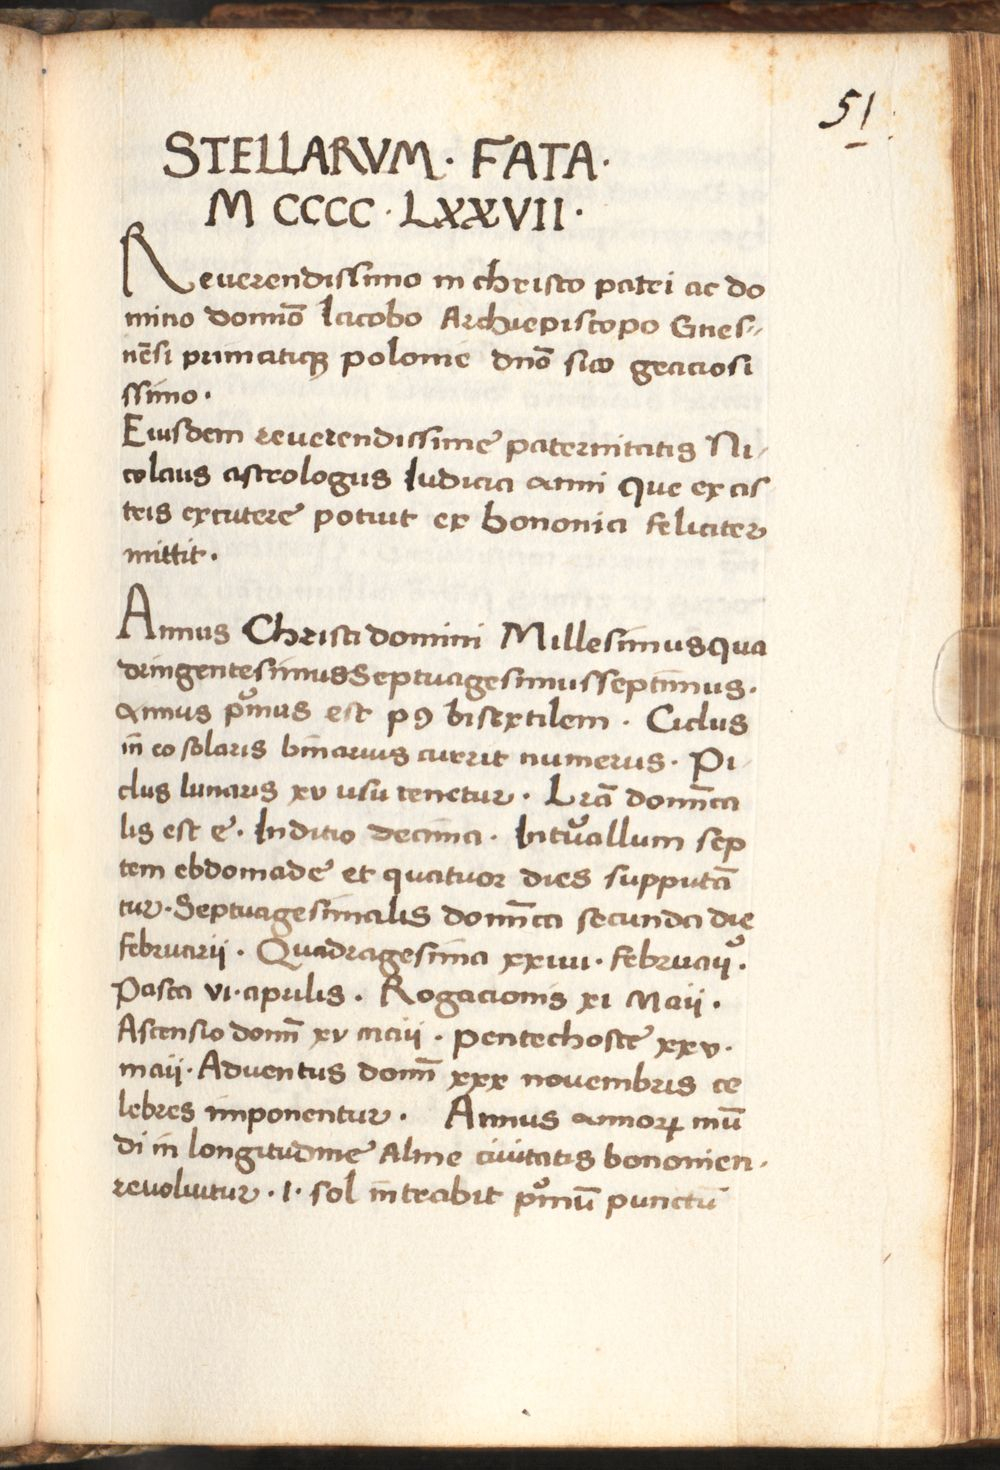 51
STELLARVM · FATA ·
M CCCC · LXXVII ·
Reuerendissimo in christo patri ac do
mino domiō Iacobo Archiepiscopo Gnes//
nēsi primatiqꝫ polonie dnō suo graciosi
ssimo ·
Eiusdem reuerendissime paternitatis Ni/
colaus astrologus Iudicia anni Que ex as
tris excutere potuit ex bononia feliciter
mittit ·
Annus Christi domini Millesimus Qua
dringentesimus Septuagesimus septimus ·
Annus pͦmus est pꝯ bisextilem · Ciclus
in̄ eo solaris binarius currit numerus · Pi
clus lunaris xv usu tenetur · Lrā domīca
lis est e · Inditio decima · Intͧallum sep
tem ebdomade et quatuor dies supputā
tur · Septuagesimalis domīca secunda die
februarii · Quadragesima xxiiii · februaii ·
Pasca vi · aprilis · Rogacionis xi Maii ·
Ascensio domī xv maii · pentechoste xxv ·
maii · Aduentus domī xxx nouembris ce
lebres imponentur · Annus annoꝝ mū
di in longitudine Alme ciuitatis bononien ·
reuoluitur · I · sol intrabit pͦmū punctū